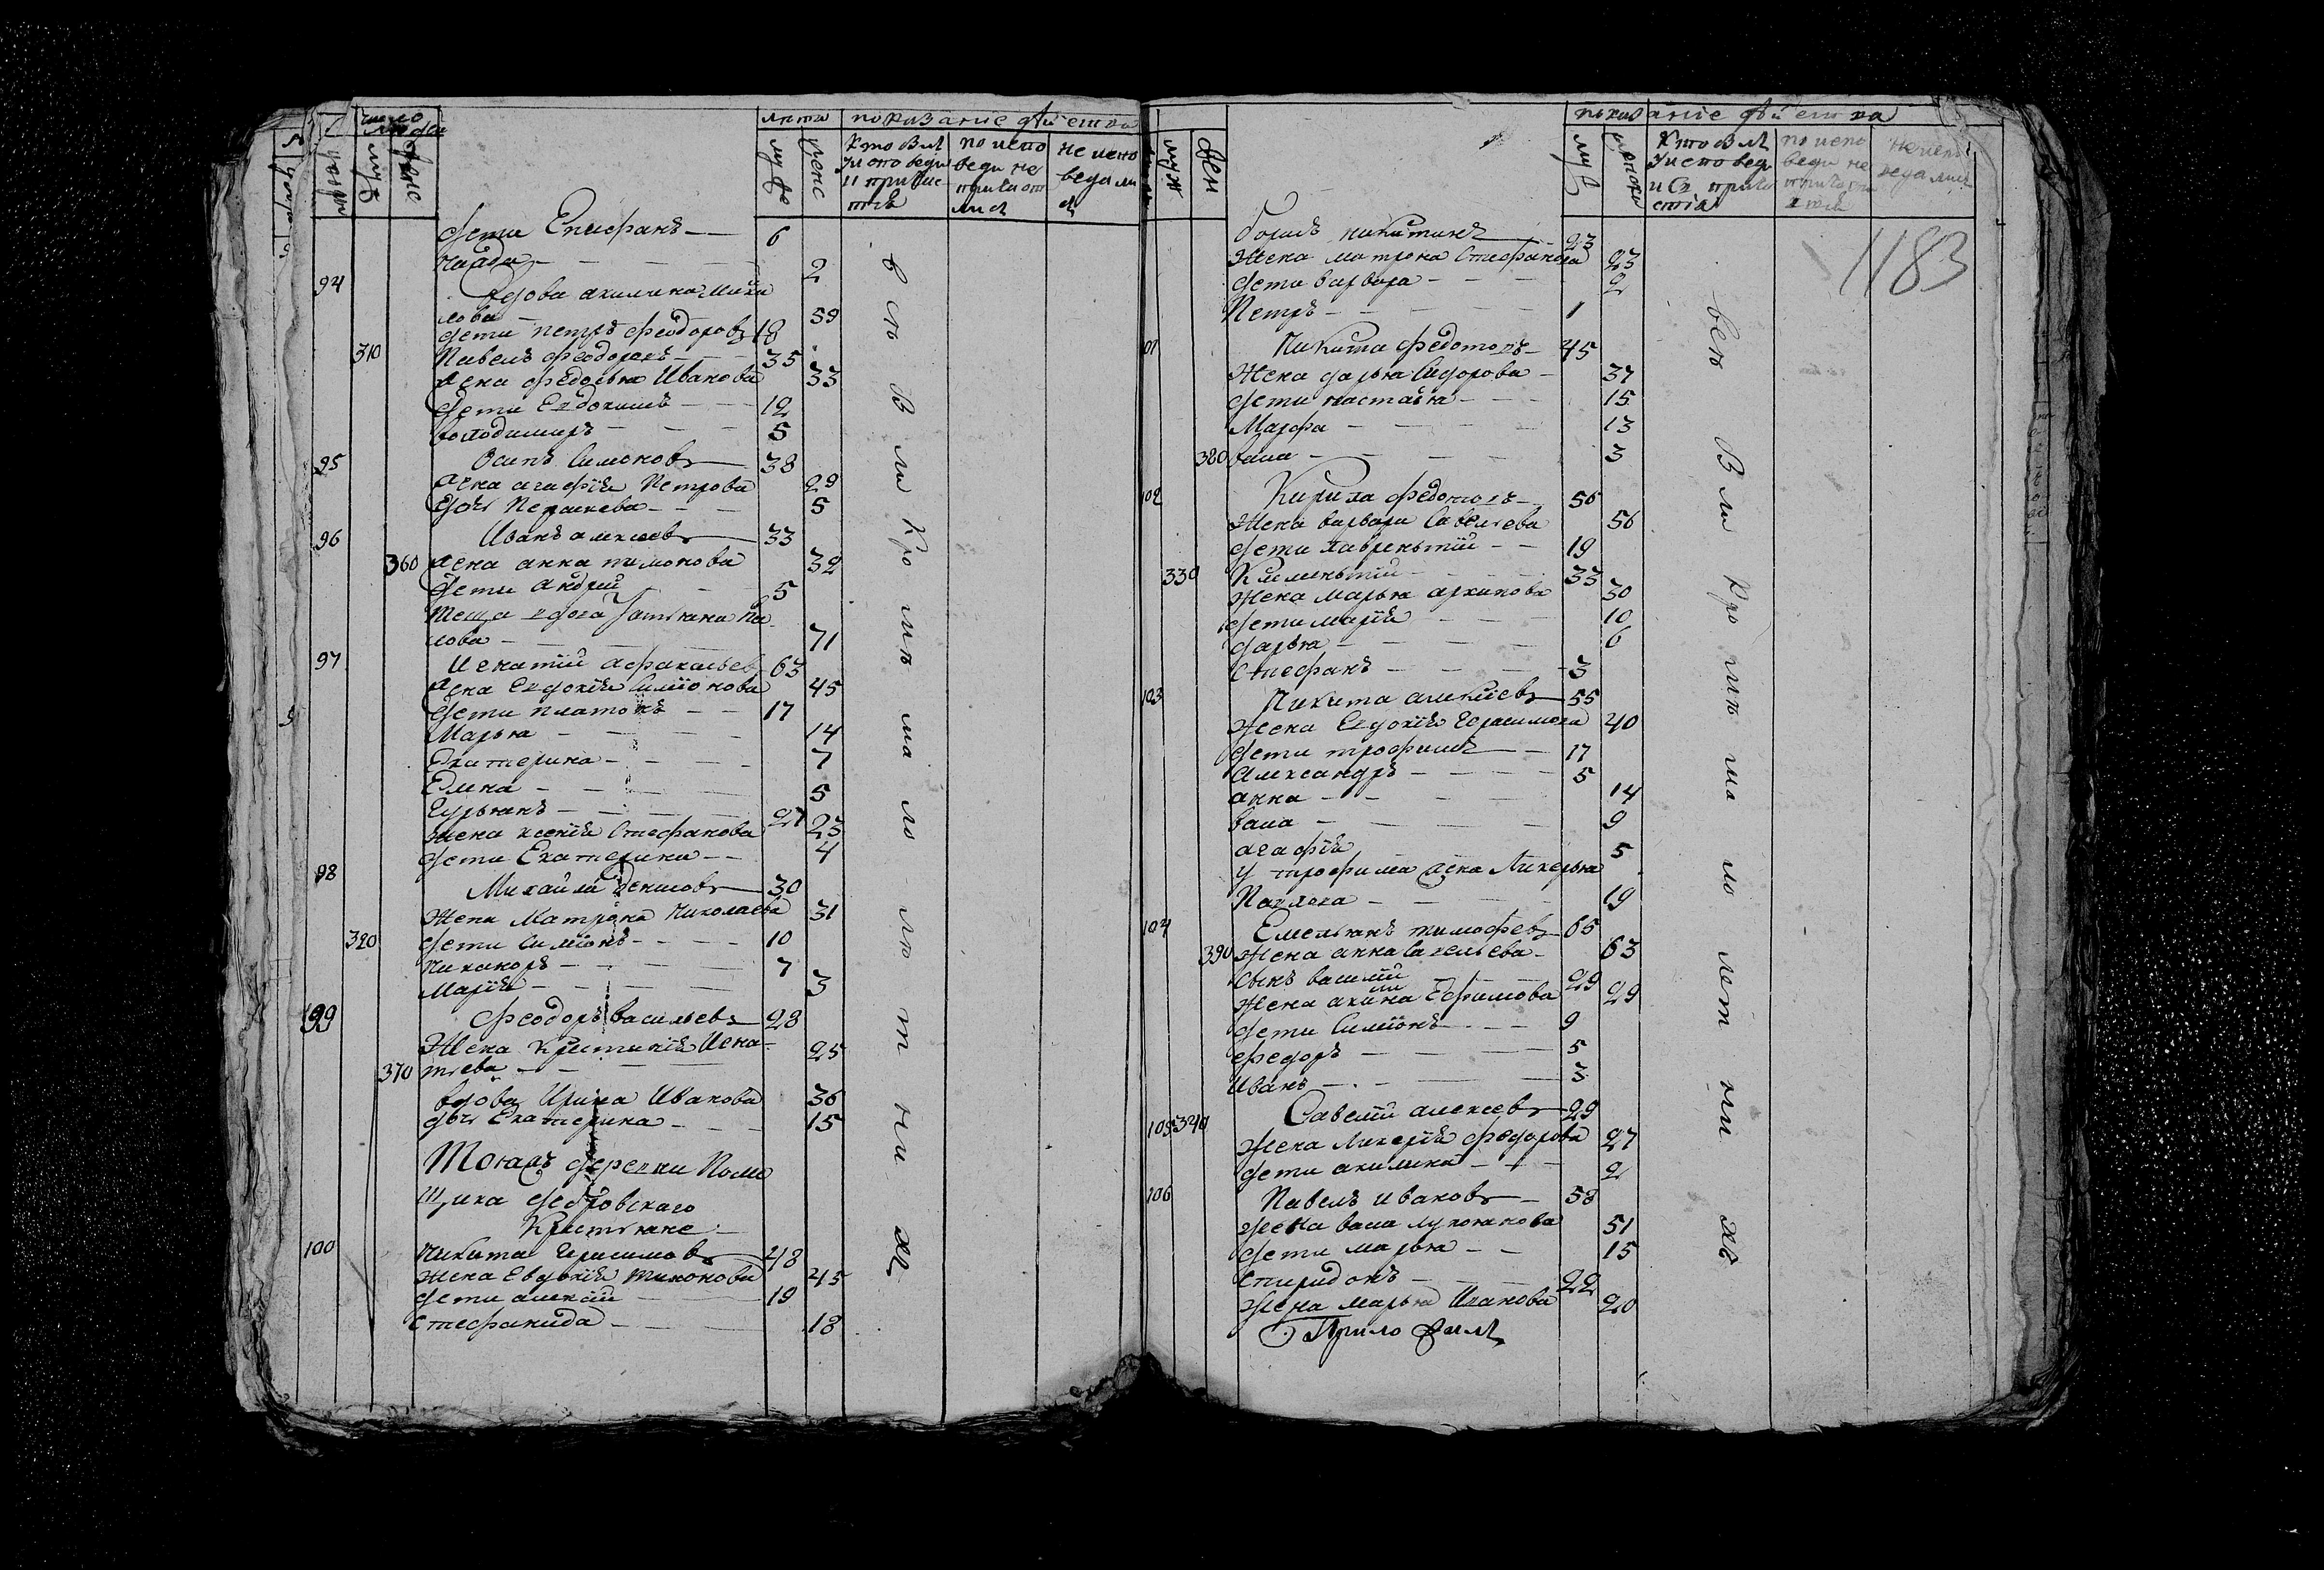 число людей лета показание действа
муж женс муже женс Кто был у исповеди и причастія по исповеди не причастились не исповедались
дети Епифанъ — 6
2
94 вдова акилина Михи
лова — 59
дети петръ феодоровъ 18
310 Павелъ феодоровъ — 35
жена федосья Иванова 33
дети Евдокимъ — 12
володимиръ — 5
95 Осипъ Симоновъ 38
жена агафія Петрова 29
дочь — 5
96 Иванъ алексеевъ 33
360 жена анна тимонова 32
дети андрей — 5
теща вдова
лова — 71
97 Игнатій 63
жена Евдокія Симіонова 45
дети платонъ — 17
Марья — 14
Екатерина — 7
Елена — 5
27
жена ксенія Стефанова 23
дети Екатерина — 4
98 Михайла Денисовъ 30
жена Матрона Николаева 31
320 дети Симіонъ — 10
Никаноръ — 7
Марія — 3
99 Феодоръ васильевъ 28
Жена Христинія Игна- 25
370 тьева —
вдова Ирина Иванова 36
дочь Екатерина — 15
Тояжъ деревни Поме
щика
Крестьяне
100 Никита Герасимовъ 48
жена Евдокія тихонова 45
дети алексей 19
Стефанида — 18
всѣ в ли кро мѣ ма ло лѣ т ни хъ
показаніе действа
муж жен муж женск Кто был у исповеди и св. причастія по исповеди не причастились не исповедались
1183
борисъ никитинъ — 23
Жена матрона Стефанова 23
дети варвара — 2
Петръ — 1
101 Никита федотовъ — 45
Жена дарья Сидорова — 37
дети настасья — 15
Марфа — 13
380 васа — 3
102 Кирила федотовъ — 56
Жена варвара Савельева 56
дети лаврентій — 19
330 Климентій — 33
Жена марья архипова 30
дети марія 10
дарья — 6
Стефанъ — 3
103 Никита алексеевъ 55
Жена Евдокія Герасимова 40
дети трофимъ — 17
Александръ — 5
анна — 14
васа — 9
агафія 5
у трофима жена Ликерья
Павлова — 19
104 Емельянъ тимофеевъ 65
390 Жена анна савельева — 63
сынъ василій 29
Жена акилина Ефимова 29
дети Симіонъ — 9
федоръ — 5
Иванъ — 3
105 340 Савелій алексеевъ 29
Жена Ликерія федорова 27
дети акилина — 2
106 Павелъ ивановъ — 58
жена васа лукьянова 51
дети марья — 15
спиридонъ — 22
Жена марья Иванова 20
всѣ в ли кро мѣ ма ло лет ни хъ